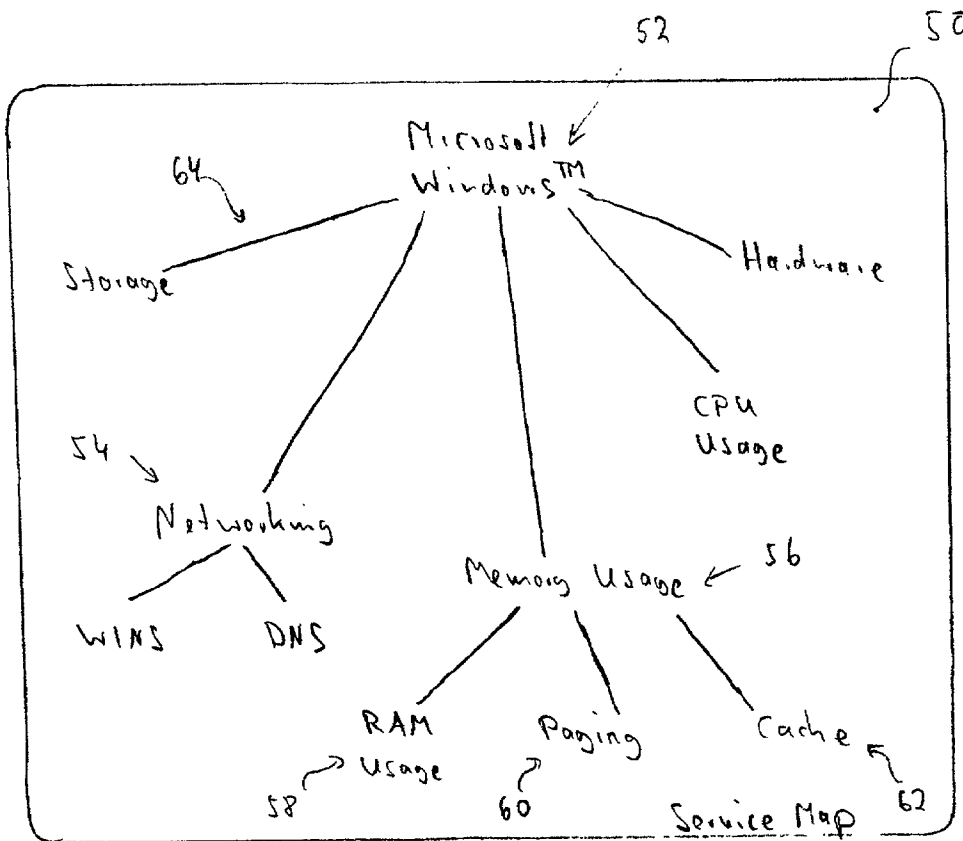 52
50
Microsoft
Windows™
64
Storage
Hardware
CPU
Usage
54
Networking
56
Memory Usage
WINS
DNS
RAM
Usage
Paging
Cache
58
60
62
Service Map